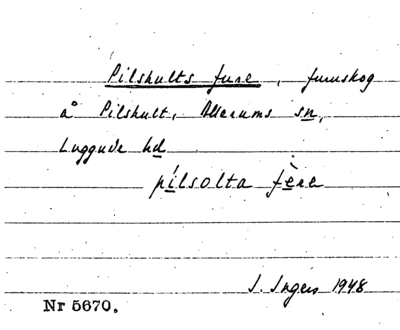 Pilshults fure, furuskog
å Pilshult, Allerums sn,
Luggude hd
pílsolta fère
I. Ingers 1948
Nr 5670.